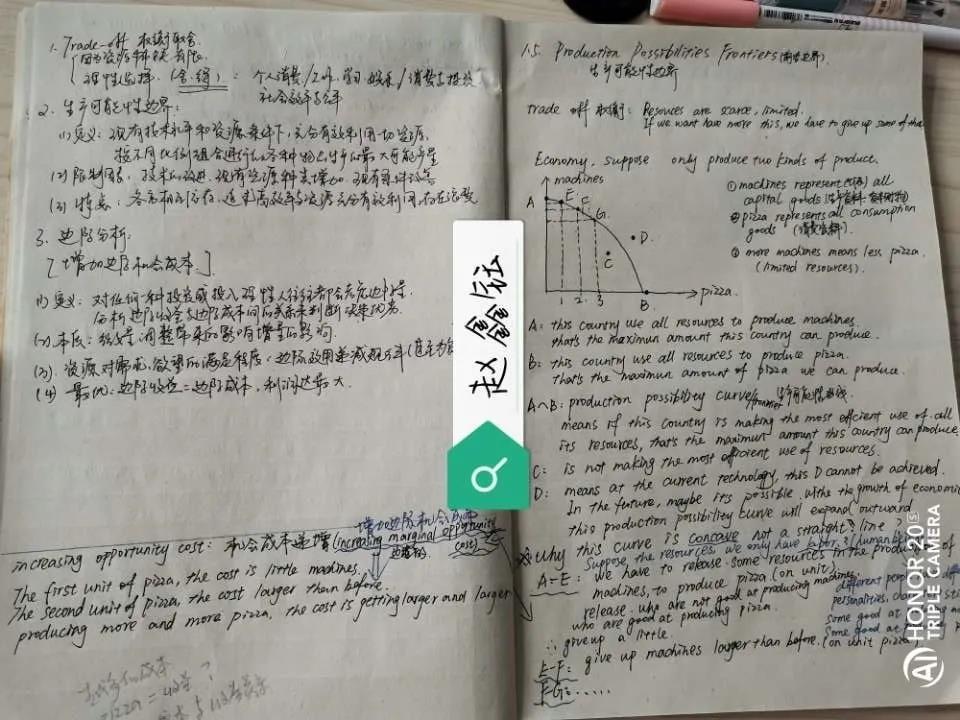 1. Trade-off 权衡取舍
因为资源稀缺有限
理性选择（舍·得）：个人消费/工作，学习娱乐/消费与投资
社会效率与公平
2. 生产可能性边界：
(1) 定义：现有技术水平和资源条件下，充分有效利用一切资源，
按不同比例组合进行的各种物品生产的最大可能产量
(2) 限制因素：技术的改进，现有资源种类增加，现有
(3) 特点：
3. 边际分析：
[增加边际机会成本.]
(1) 定义：对任何一种投资或投入理性人往往都会考虑边际量.
分析边际收益与边际成本间的关系来判断决策优劣.
(2) 本质：
(3) 资源对需求，欲望的满足程度，边际效用递减规律
(4) 最优：边际收益=边际成本，利润达最大.
增加边际机会成本
increasing opportunity cost: 机会成本递增 (increasing marginal opportunity
边际的 cost)
The first unit of pizza, the cost is little machines.
The second unit of pizza, the cost larger than before.
producing more and more pizza, the cost is getting larger and larger
1.5. Production Possibilities Frontiers
生产可能性边界
trade off 权衡: Resources are scarce, limited.
If we want have more this, we have to give up some of that
Economy, suppose only produce two kinds of produce.
machines
A E C G.
D.
C
1 2 3 B pizza.
① machines represent all
capital goods
② pizza represents all consumption
goods
③ more machines means less pizza.
(limited resources).
A: this country use all resources to produce machines.
that's the maximun amount this country can produce.
B: this country use all resources to produce pizza.
that's the maximun amount of pizza we can produce.
A~B: production possibility curve/frontier 生产可能性曲线.
means if this country is making the most efficient use of all
its resources, that's the maximum amount this country can produce.
C: is not making the most efficient use of resources.
D: means at the current technology, this D cannot be achieved.
In the future, maybe its possible withe the growth of economic
this production possibility curve will expand outward.
why this curve is concave not a straight line?
Suppose, the resources, we only have labor.
A-E: we have to release some resources in the production of
machines, to produce pizza (on unit).
release who are not good at producing machines,
who are good at producing pizza.
∴ give up a little.
different people
personalities,
some good at
some good at
E-F: give up machines larger than before. (on unit pizza)
F-G: ......
赵鑫钰
HONOR 20S
AI TRIPLE CAMERA